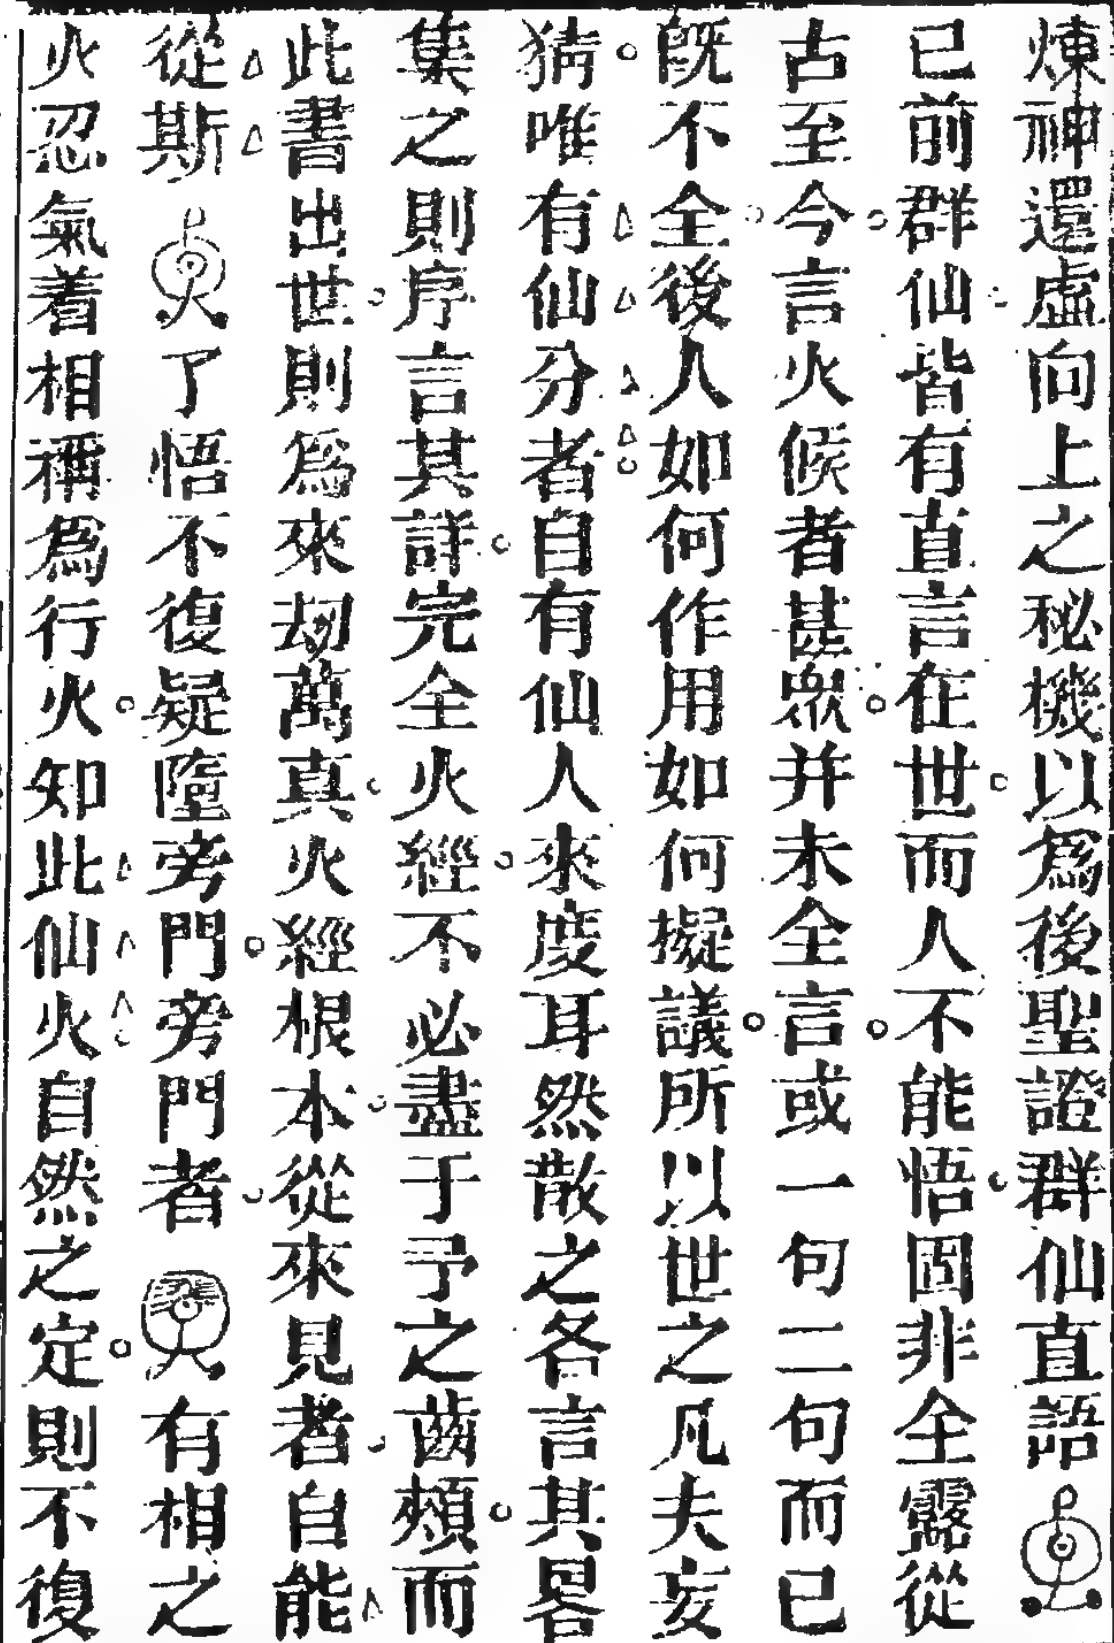 煉神還虛向上之秘機以爲後聖證群仙直語
已前群仙皆有直言在世而人不能悟固非全露從
古至今言火候者甚眾并未全言或一句二句而已
既不全後人如何作用如何擬議所以世之凡夫妄
猜唯有仙分者自有仙人來度耳然散之各言其畧
集之則序言其詳完全火經不必盡于予之齒頰而
此書出世則爲來劫萬真火經根本從來見者自能
從斯了悟不復疑墮旁門旁門者有相之
火忍氣着相稱爲行火知此仙火自然之定則不復